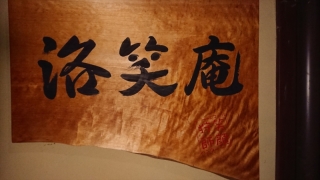 洛笑庵